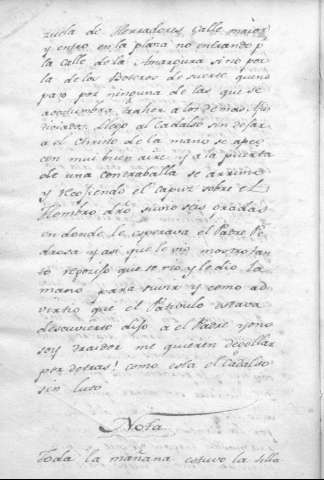 zuela de Herradores, Calle maior
y entro en la plaza no entrando p
la calle de la Amargura si no por
la de los Boteros de suerte que no
paso por ninguna de las que se
acostumbra traher a los demas
Llego al Cadalso sin dejar
a el Christo de la mano se apeo
con mui buen aire y a la puerta
de una contraballa se arrimo
y recojiendo el capuz sobre el
Hombro dro suvio seis gradas
en donde le esperava el Padre Pe
drosa y asi que le vio mostro tan
to regocijo que se rio y le dio la
mano para suvir y como ad
virtio que el Pativulo estava
descuvierto dijo a el Padre yo no
soy traidor me quieren degollar
por detras! como esta el Cadalso
sin luto
Nota
Toda la mañana estuvo la silla